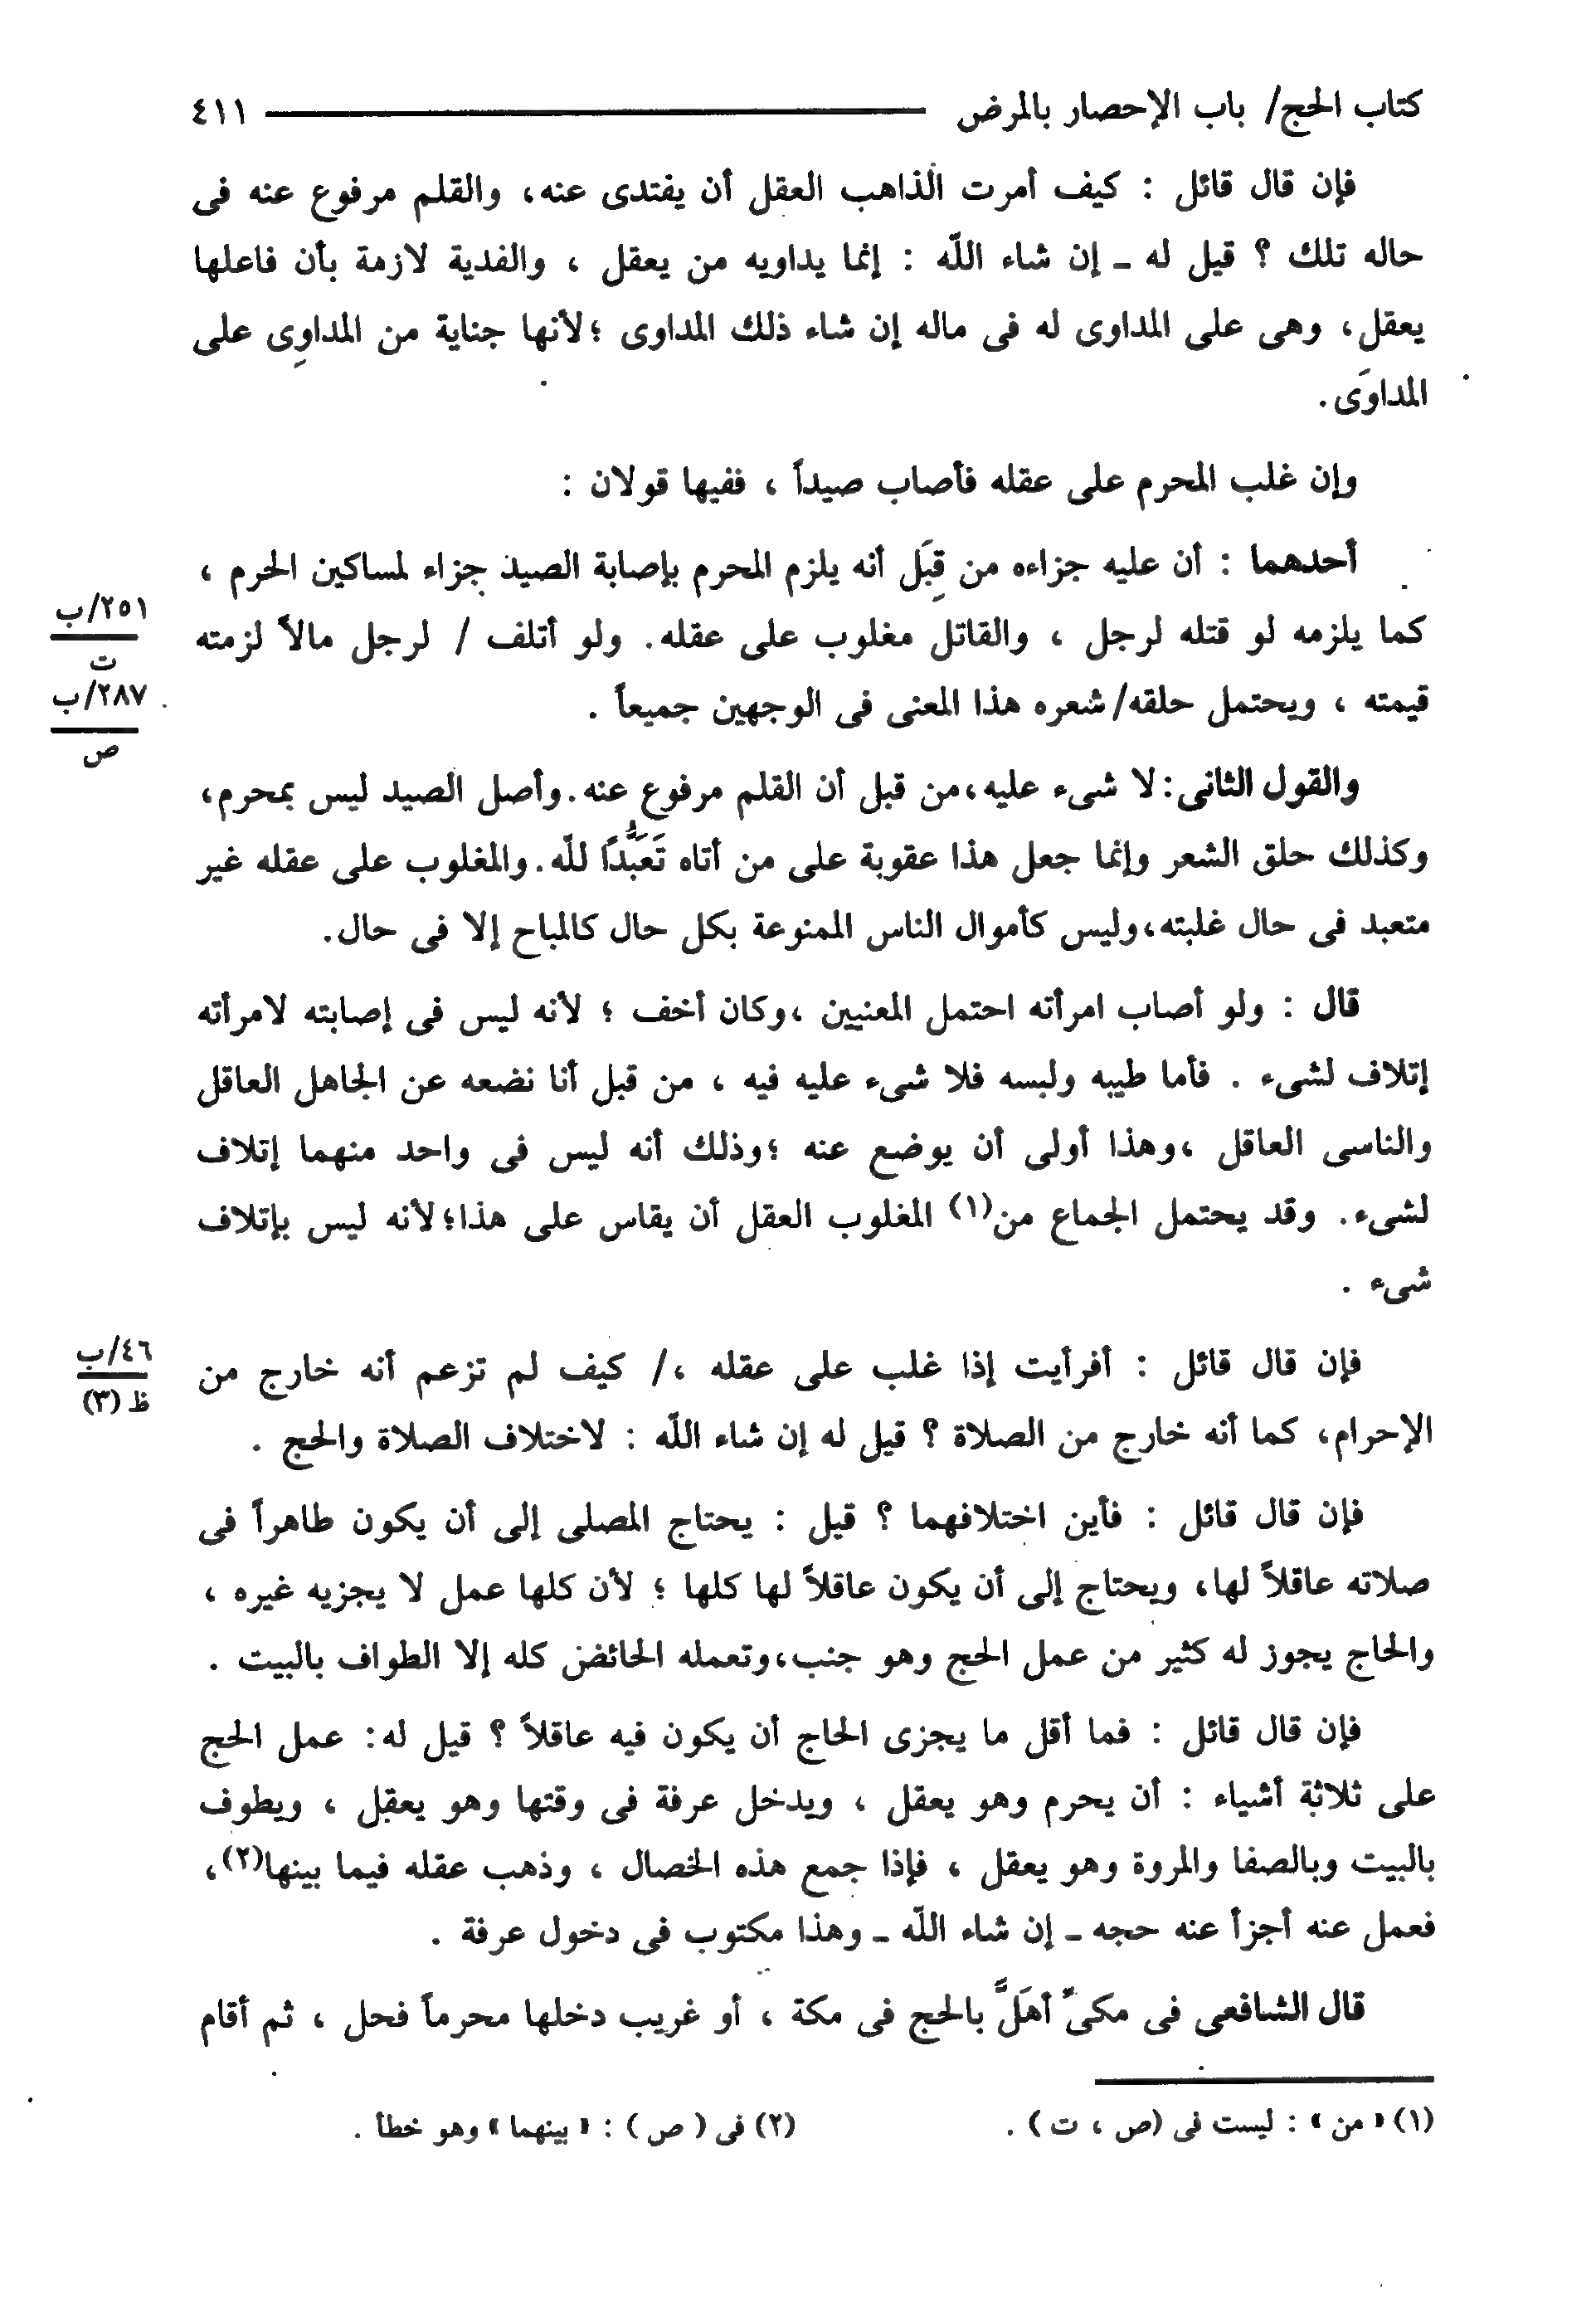 كتاب الحج/ باب الإحصار بالمرض ٤١١
فإن قال قائل : كيف أمرت الذاهب العقل أن يفتدى عنه، والقلم مرفوع عنه فى
حاله تلك ؟ قيل له ـ إن شاء اللّه : إنما يداويه من يعقل ، والفدية لازمة بأن فاعلها
يعقل، وهى على المداوى له فى ماله إن شاء ذلك المداوى ؛لأنها جناية من المداوِى على
المداوَى.
وإن غلب المحرم على عقله فأصاب صيداً ، ففيها قولان :
أحدهما : أن عليه جزاءه من قِبَل أنه يلزم المحرم بإصابة الصيد جزاء لمساكين الحرم ،
كما يلزمه لو قتله لرجل ، والقاتل مغلوب على عقله. ولو أتلف / لرجل مالاً لزمته
قيمته ، ويحتمل حلقه/ شعره هذا المعنى فى الوجهين جميعاً .
٢٥١/ب
ت
٢٨٧/ب
ص
والقول الثانى:لا شىء عليه،من قبل أن القلم مرفوع عنه.وأصل الصيد ليس بمحرم،
وكذلك حلق الشعر وإنما جعل هذا عقوبة على من أتاه تَعَبُّدًا للّه.والمغلوب على عقله غير
متعبد فى حال غلبته،وليس كأموال الناس الممنوعة بكل حال كالمباح إلا فى حال.
قال : ولو أصاب امرأته احتمل المعنيين ،وكان أخف ؛ لأنه ليس فى إصابته لامرأته
إتلاف لشىء . فأما طيبه ولبسه فلا شىء عليه فيه ، من قبل أنا نضعه عن الجاهل العاقل
والناسى العاقل ،وهذا أولى أن يوضع عنه ؛وذلك أنه ليس فى واحد منهما إتلاف
لشىء. وقد يحتمل الجماع من(١) المغلوب العقل أن يقاس على هذا؛لأنه ليس بإتلاف
شىء .
فإن قال قائل : أفرأيت إذا غلب على عقله ،/ كيف لم تزعم أنه خارج من
٤٦/ب
ظ (٣)
الإحرام، كما أنه خارج من الصلاة ؟ قيل له إن شاء اللّه : لاختلاف الصلاة والحج .
فإن قال قائل : فأين اختلافهما ؟ قيل : يحتاج المصلى إلى أن يكون طاهراً فى
صلاته عاقلاً لها، ويحتاج إلى أن يكون عاقلاً لها كلها ؛ لأن كلها عمل لا يجزيه غيره ،
والحاج يجوز له كثير من عمل الحج وهو جنب،وتعمله الحائض كله إلا الطواف بالبيت .
فإن قال قائل : فما أقل ما يجزى الحاج أن يكون فيه عاقلاً ؟ قيل له: عمل الحج
على ثلاثة أشياء : أن يحرم وهو يعقل ، ويدخل عرفة فى وقتها وهو يعقل ، ويطوف
بالبيت وبالصفا والمروة وهو يعقل ، فإذا جمع هذه الخصال ، وذهب عقله فيما بينها(٢)،
فعمل عنه أجزأ عنه حجه ـ إن شاء اللّه ـ وهذا مكتوب فى دخول عرفة .
قال الشافعى فى مكىٍّ أهَلَّ بالحج فى مكة ، أو غريب دخلها محرماً فحل ، ثم أقام
(١) « من » : ليست فى (ص ، ت ) . (٢) فى ( ص ) : « بينهما » وهو خطأ .